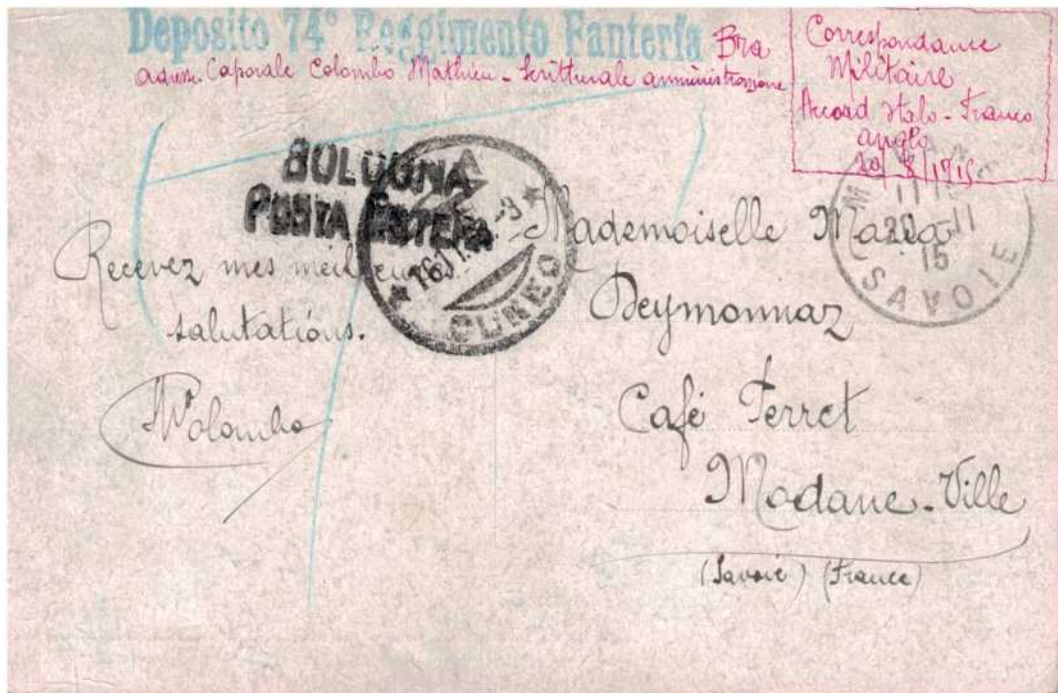 Deposito 74° Reggimento Fanteria Bra
adresse. Caporale Colombo Mathieu - Scritturale amministrazione
Correspondance
Militaire
Accord Italo-Franco
anglo
20/8/1915
BOLOGNA
POSTA ESTERA
CUNEO
11
15
SAVOIE
Recevez mes meilleures
salutations.
Colombo
Mademoiselle Maria
Deymonnaz
Café Ferret
Modane-Ville
(Savoie) (France)